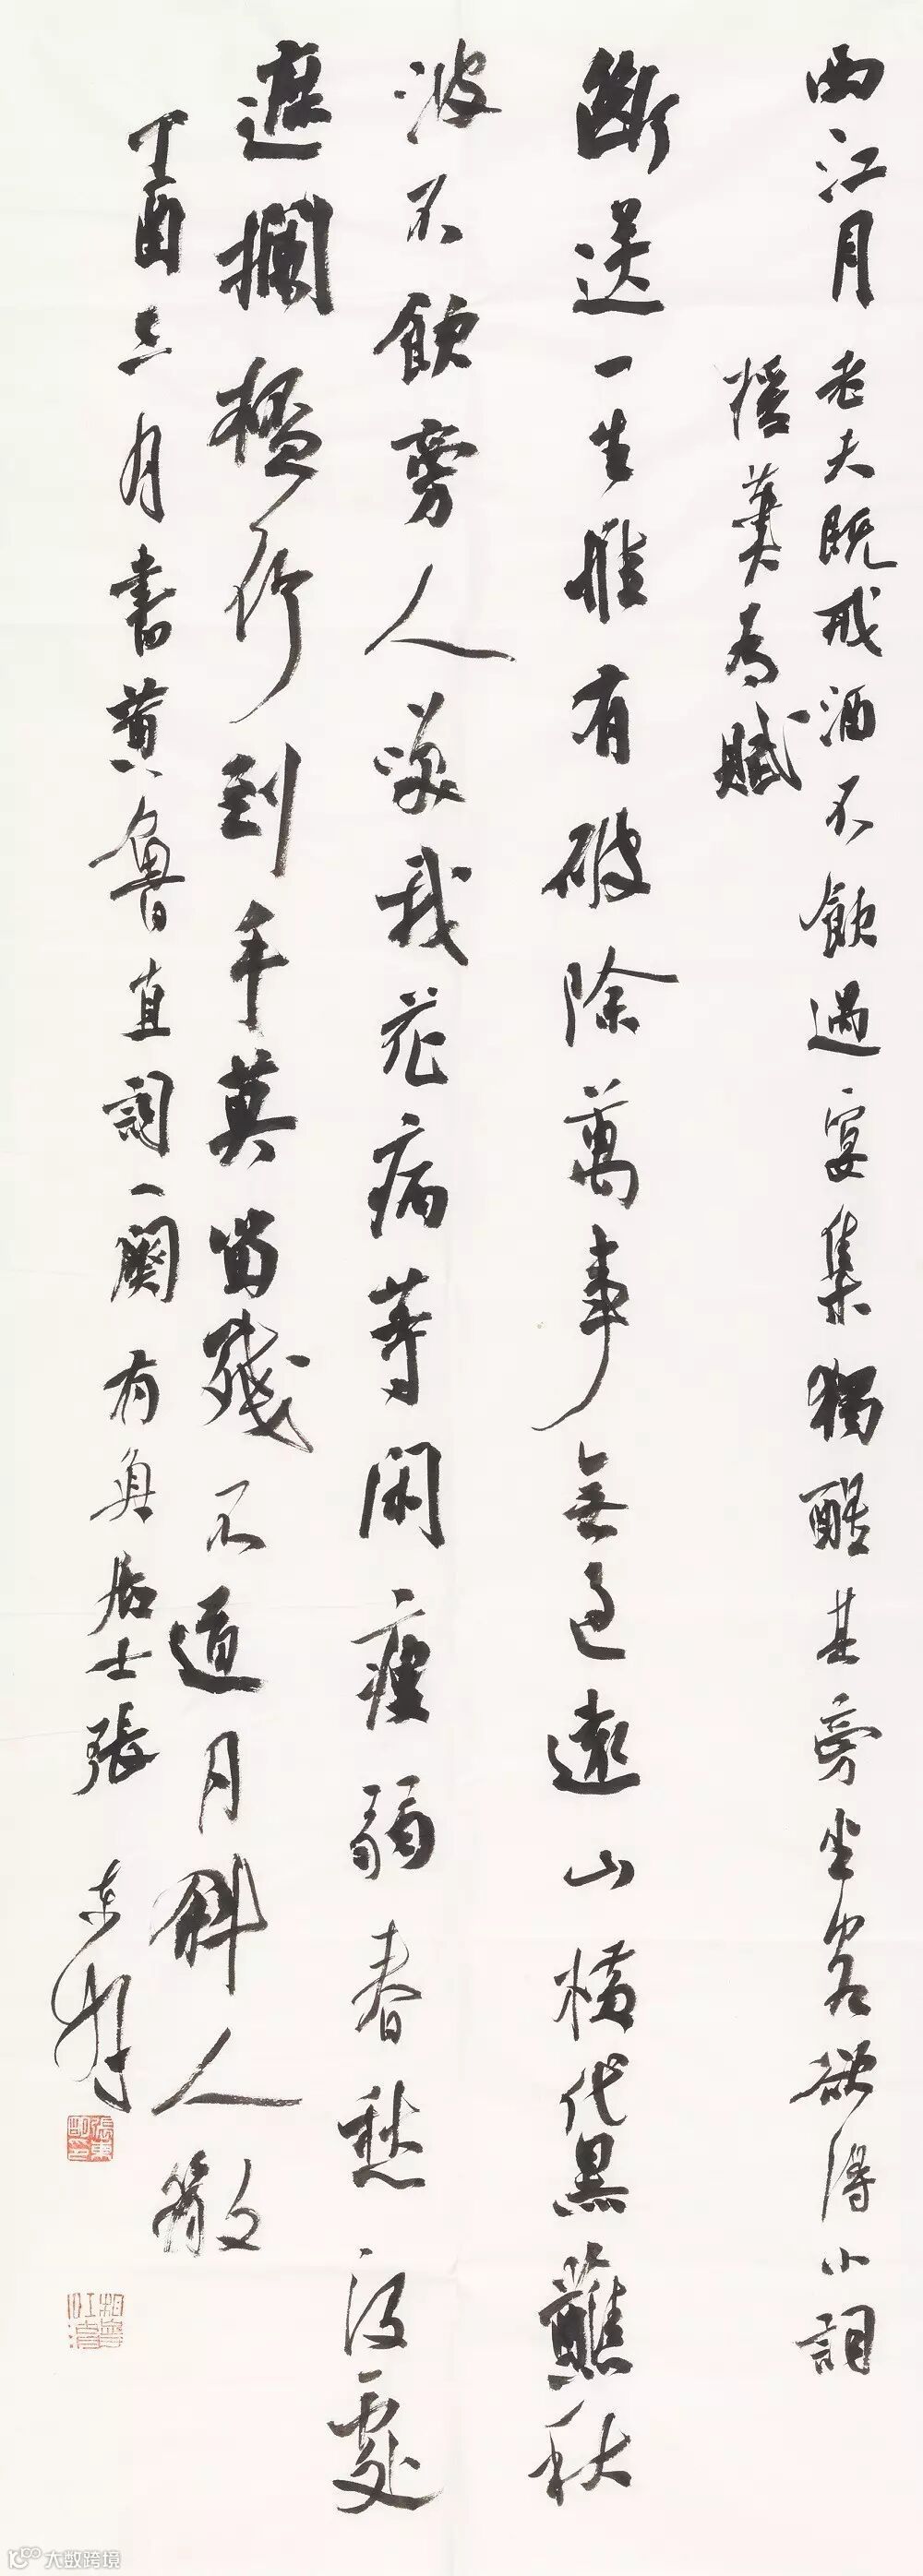 西江月 老夫既戒酒不飲遇宴集獨醒其旁坐客欲得小詞
援筆為賦
斷送一生惟有破除萬事無過遠山橫黛蘸秋
波不飲旁人笑我花病等閑瘦弱春愁沒處
遮攔杯行到手莫留殘不道月斜人散
丁酉三月書黃魯直詞一闋 有居士張東
大数跨境